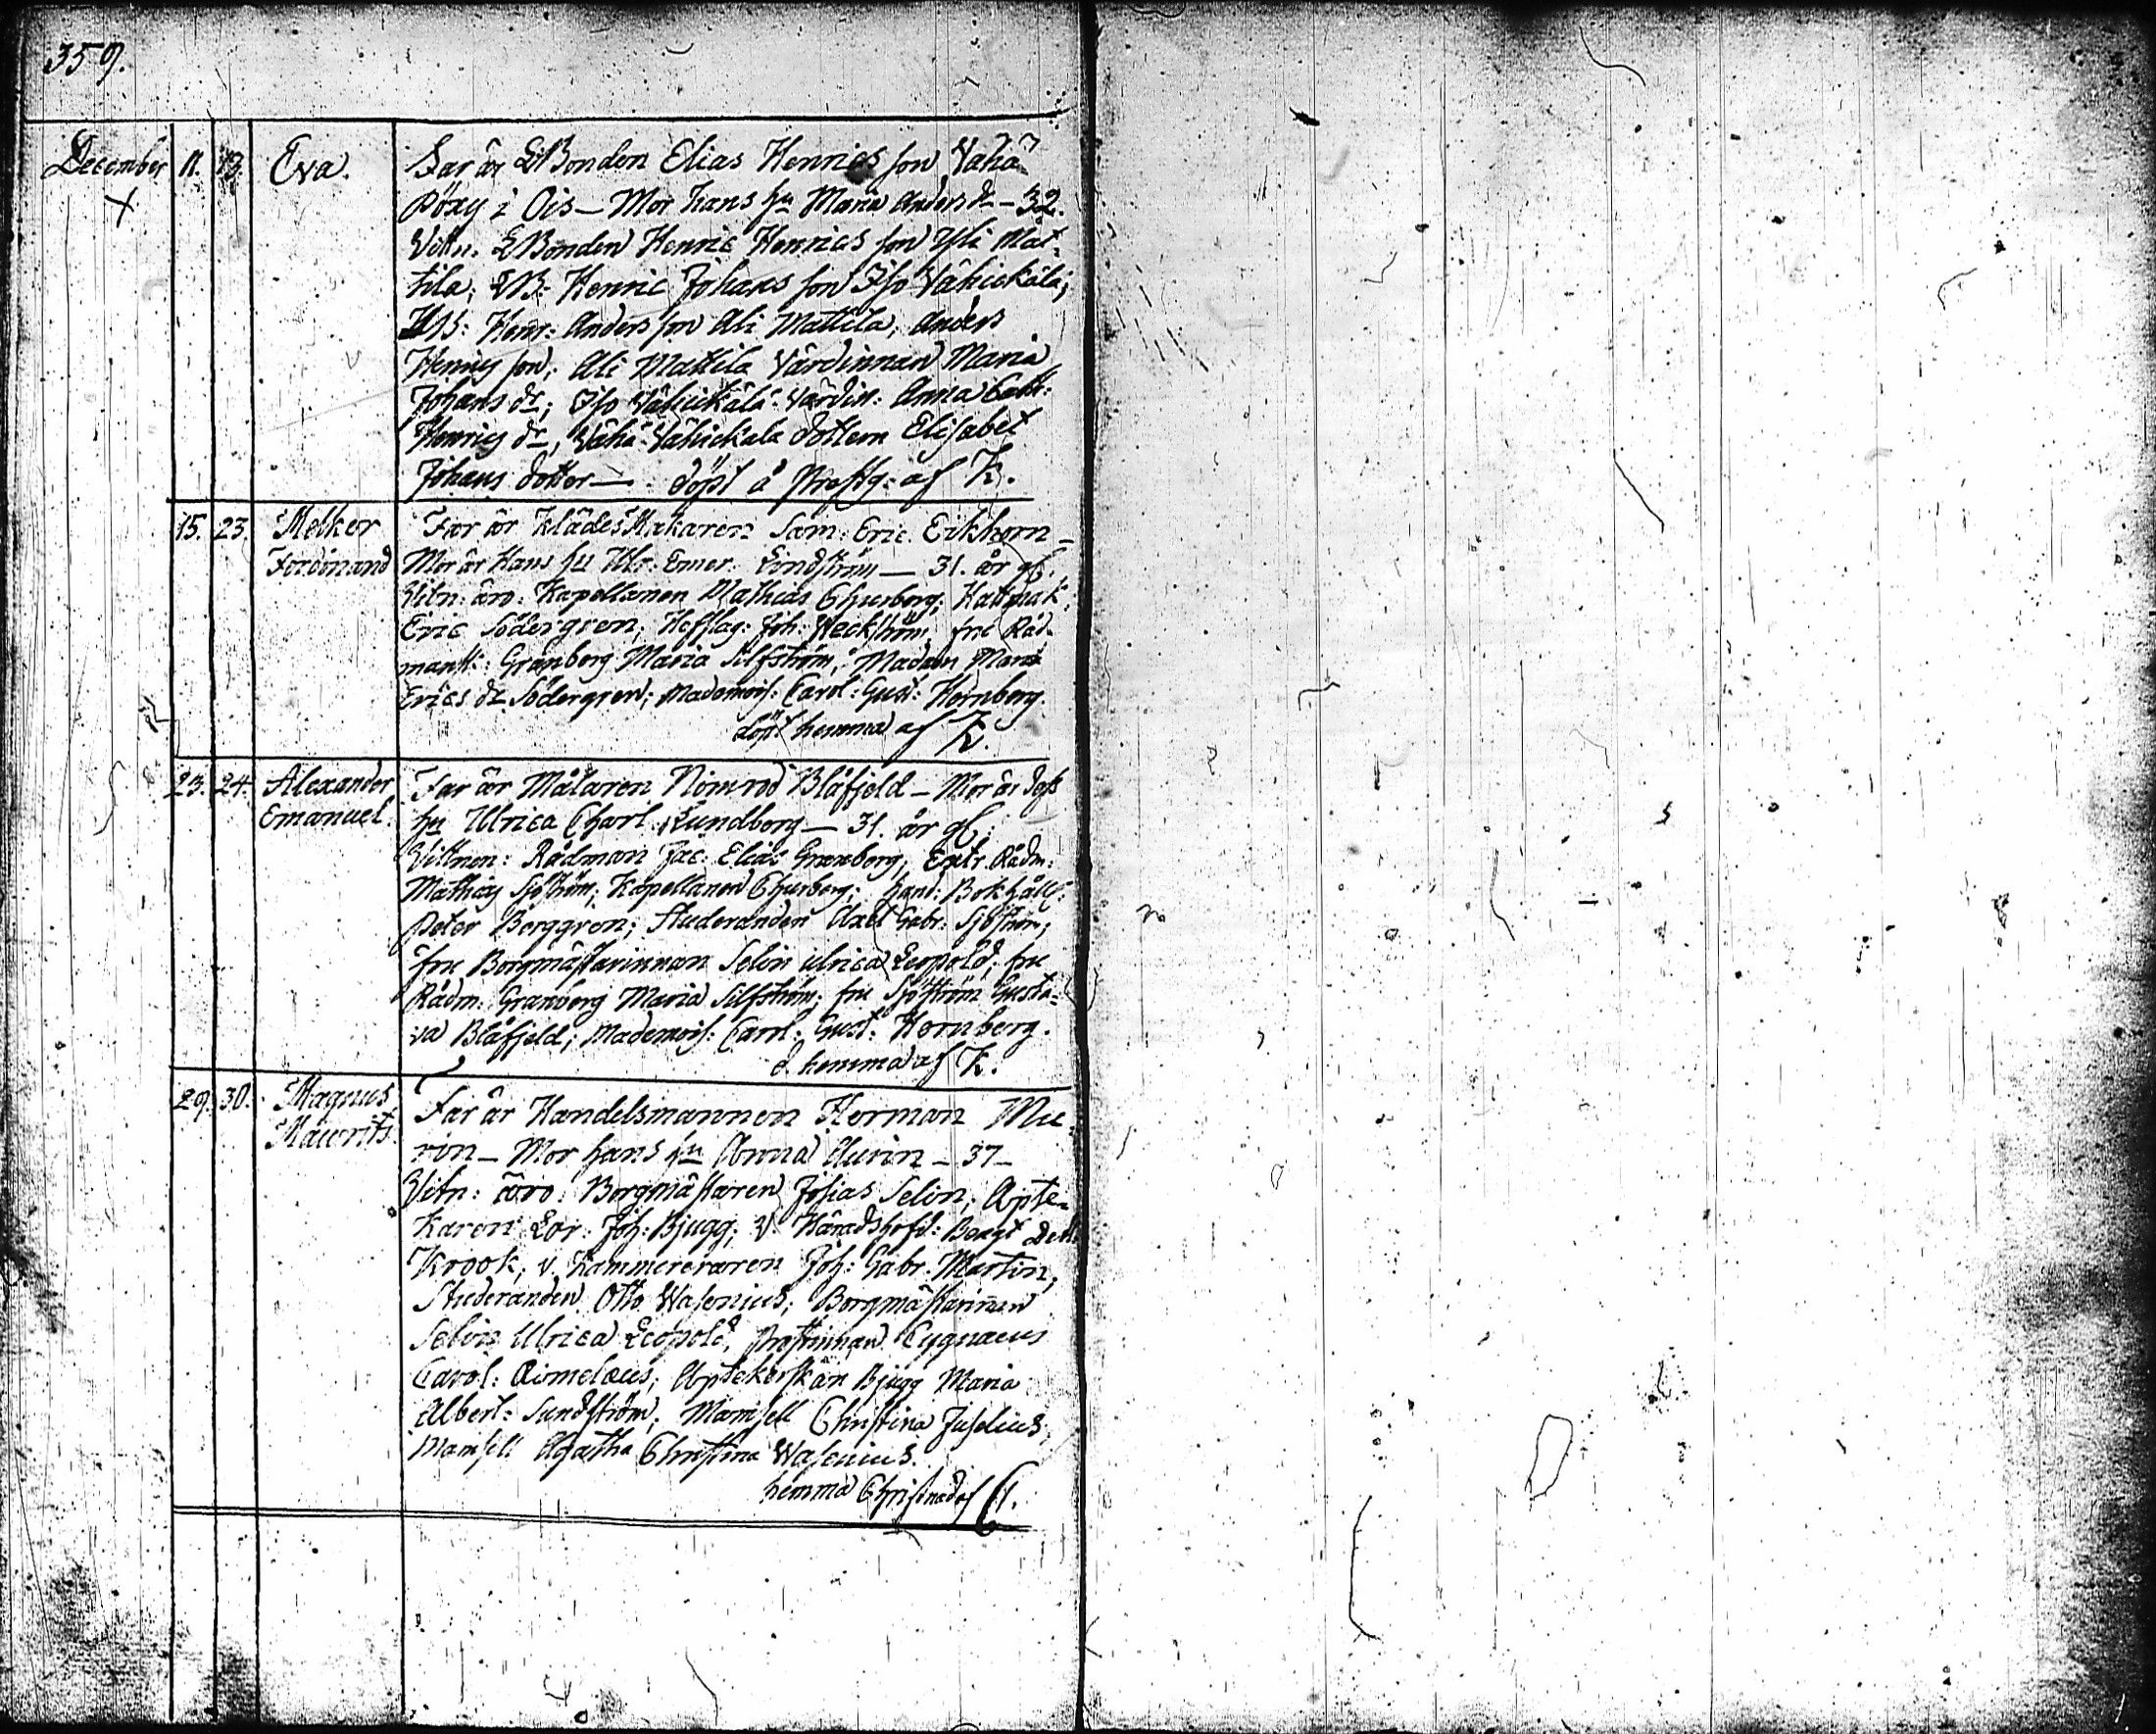 359.
December 11. 13. Eva. Far är LBonden Elias Henrics son Vähä
Pöxy i Ois - Mor hans hu Maria Anders dr - 32.
Vittn: LBonden Henric Henrics son Yli Mat-
tila; LB: Henric Johans son Iso Vähickälä;
Henr: Anders son Ali Mattila; Anders
Henrics son; Ali Mattila Värdinnan Maria
Johans dr; Iso Vähickälä Värdin: Anna Cath:
Henrics dr, Vähä Vähickala dottern Elisabet
Johans dotter - döpt å Prestg: af K.
15. 23. Melker Far är KlädesMakaren Sam: Eric Eikhorn -
Ferdinand Mor är Hans hu Ulr: Emer: Lindström - 31. år gl.
Vitn: äro: Kapellanen Mathias Churberg;
Eric Södergren; Hofslag: Joh: Weckström, fru Råd-
mansk: Granberg Maria Silfström; Madam Maria
Erics dr Södergren; Mademois: Carol: Gust: Hornborg.
döpt hemma af K.
23. 24. Alexander Far är Målaren Nimrod Blåfjeld - Mor är dess
Emanuel. hu Ulrica Charl: Lundborg - 31. år gl:
Vittnen: Rådman Jac: Elias Granberg; Extr. Rådm:
Mathias Sjöström; Kapellanen Churberg; Hand: Bokhåll:
Peter Berggren; Studeranden Axel Gabr: Sjöström;
fru Borgmästarinnan Selin Ulrica Leopold; fru
Rådm: Granberg Maria Silfström; fru Sjöström Gusta-
va Blåfjeld; Mademois: Carol: Gust: Hornborg.
d. hemma af K.
29. 30. Magnus Far är Handelsmannen Herman Mu-
Maurits. rin - Mor hans hu Anna Aurin - 37 -
Vitn: äro: Borgmästaren Josias Selin; Apte-
karen Lor: Joh: Bjugg; V. Häradshöfd: Bengt
Krook; v. Kammereraren Joh: Gabr: Martin;
Studeranden Otto Wasenius; Borgmästarinnan
Selin Ulrica Leopold; Prostinnan Cygnaeus
Carol: Aimelæus; Aptekerskan Bjugg Maria
Albert: Sundström; Mamsell Christina Juselius;
Mamsell Agatha Christina Wasenius.
hemma Christnad af